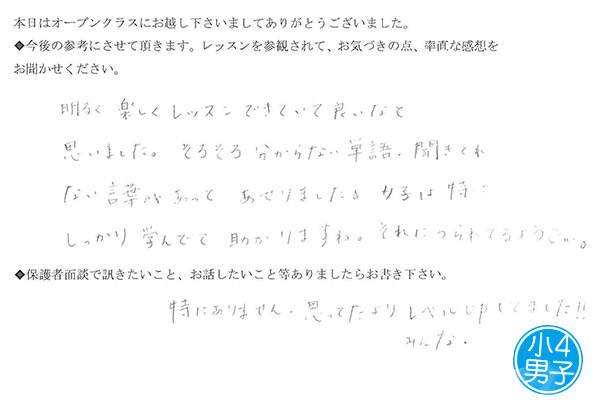 本日はオープンクラスにお越し下さいましてありがとうございました。
◆今後の参考にさせて頂きます。レッスンを参観されて、お気づきの点、率直な感想を
お聞かせください。
明るく 楽しく レッスン できていて 良いなと
思いました。そろそろ 分からない 単語、聞きとれ
ない 言葉が あって あせりました。女子は 特に
しっかり 学んでて 助かりますね。それに つられてるようで。
◆保護者面談で訊きたいこと、お話したいこと等ありましたらお書き下さい。
特にありません。思ってたより レベルupしてました!!
みんな。
小4
男子